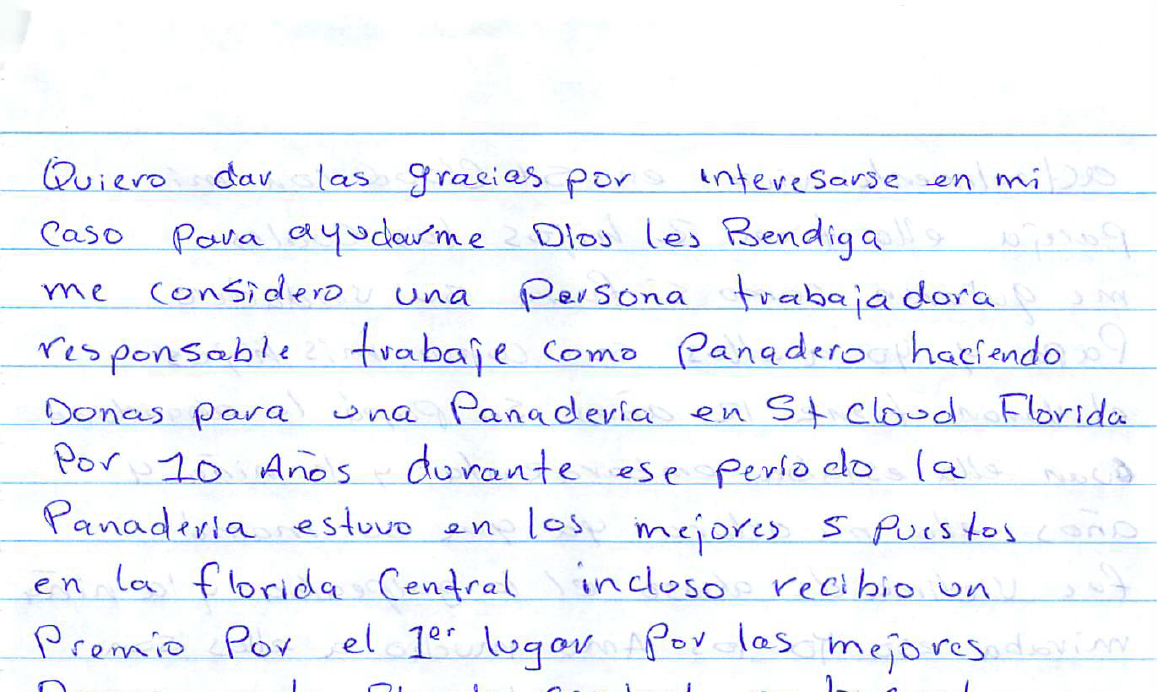 Quiero dar las gracias por interesarse en mi
caso para ayudarme Dios les Bendiga
me considero una Persona trabajadora
responsable trabaje como Panadero haciendo
Donas para una Panaderia en St Cloud Florida
Por 10 Años durante ese periodo la
Panaderia estuvo en los mejores 5 Puestos
en la florida Central incluso recibio un
Premio Por el 1er lugar Por las mejores